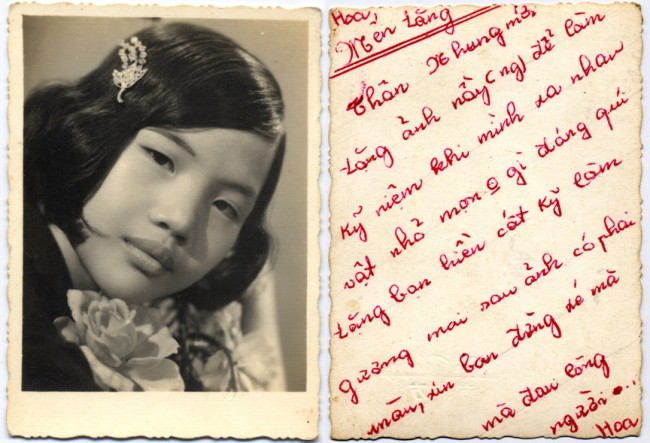 Hoa
Mến tặng
Thân Nhung mới
tặng ảnh nầy (ng) để làm
kỹ niệm khi mình xa nhau
vật nhỏ mọn o gì đáng quí
tặng bạn hiền cất kỹ làm
gương mai sau ảnh có phai
màu, xin bạn đừng xé mà
mà đau lòng
người...
Hoa